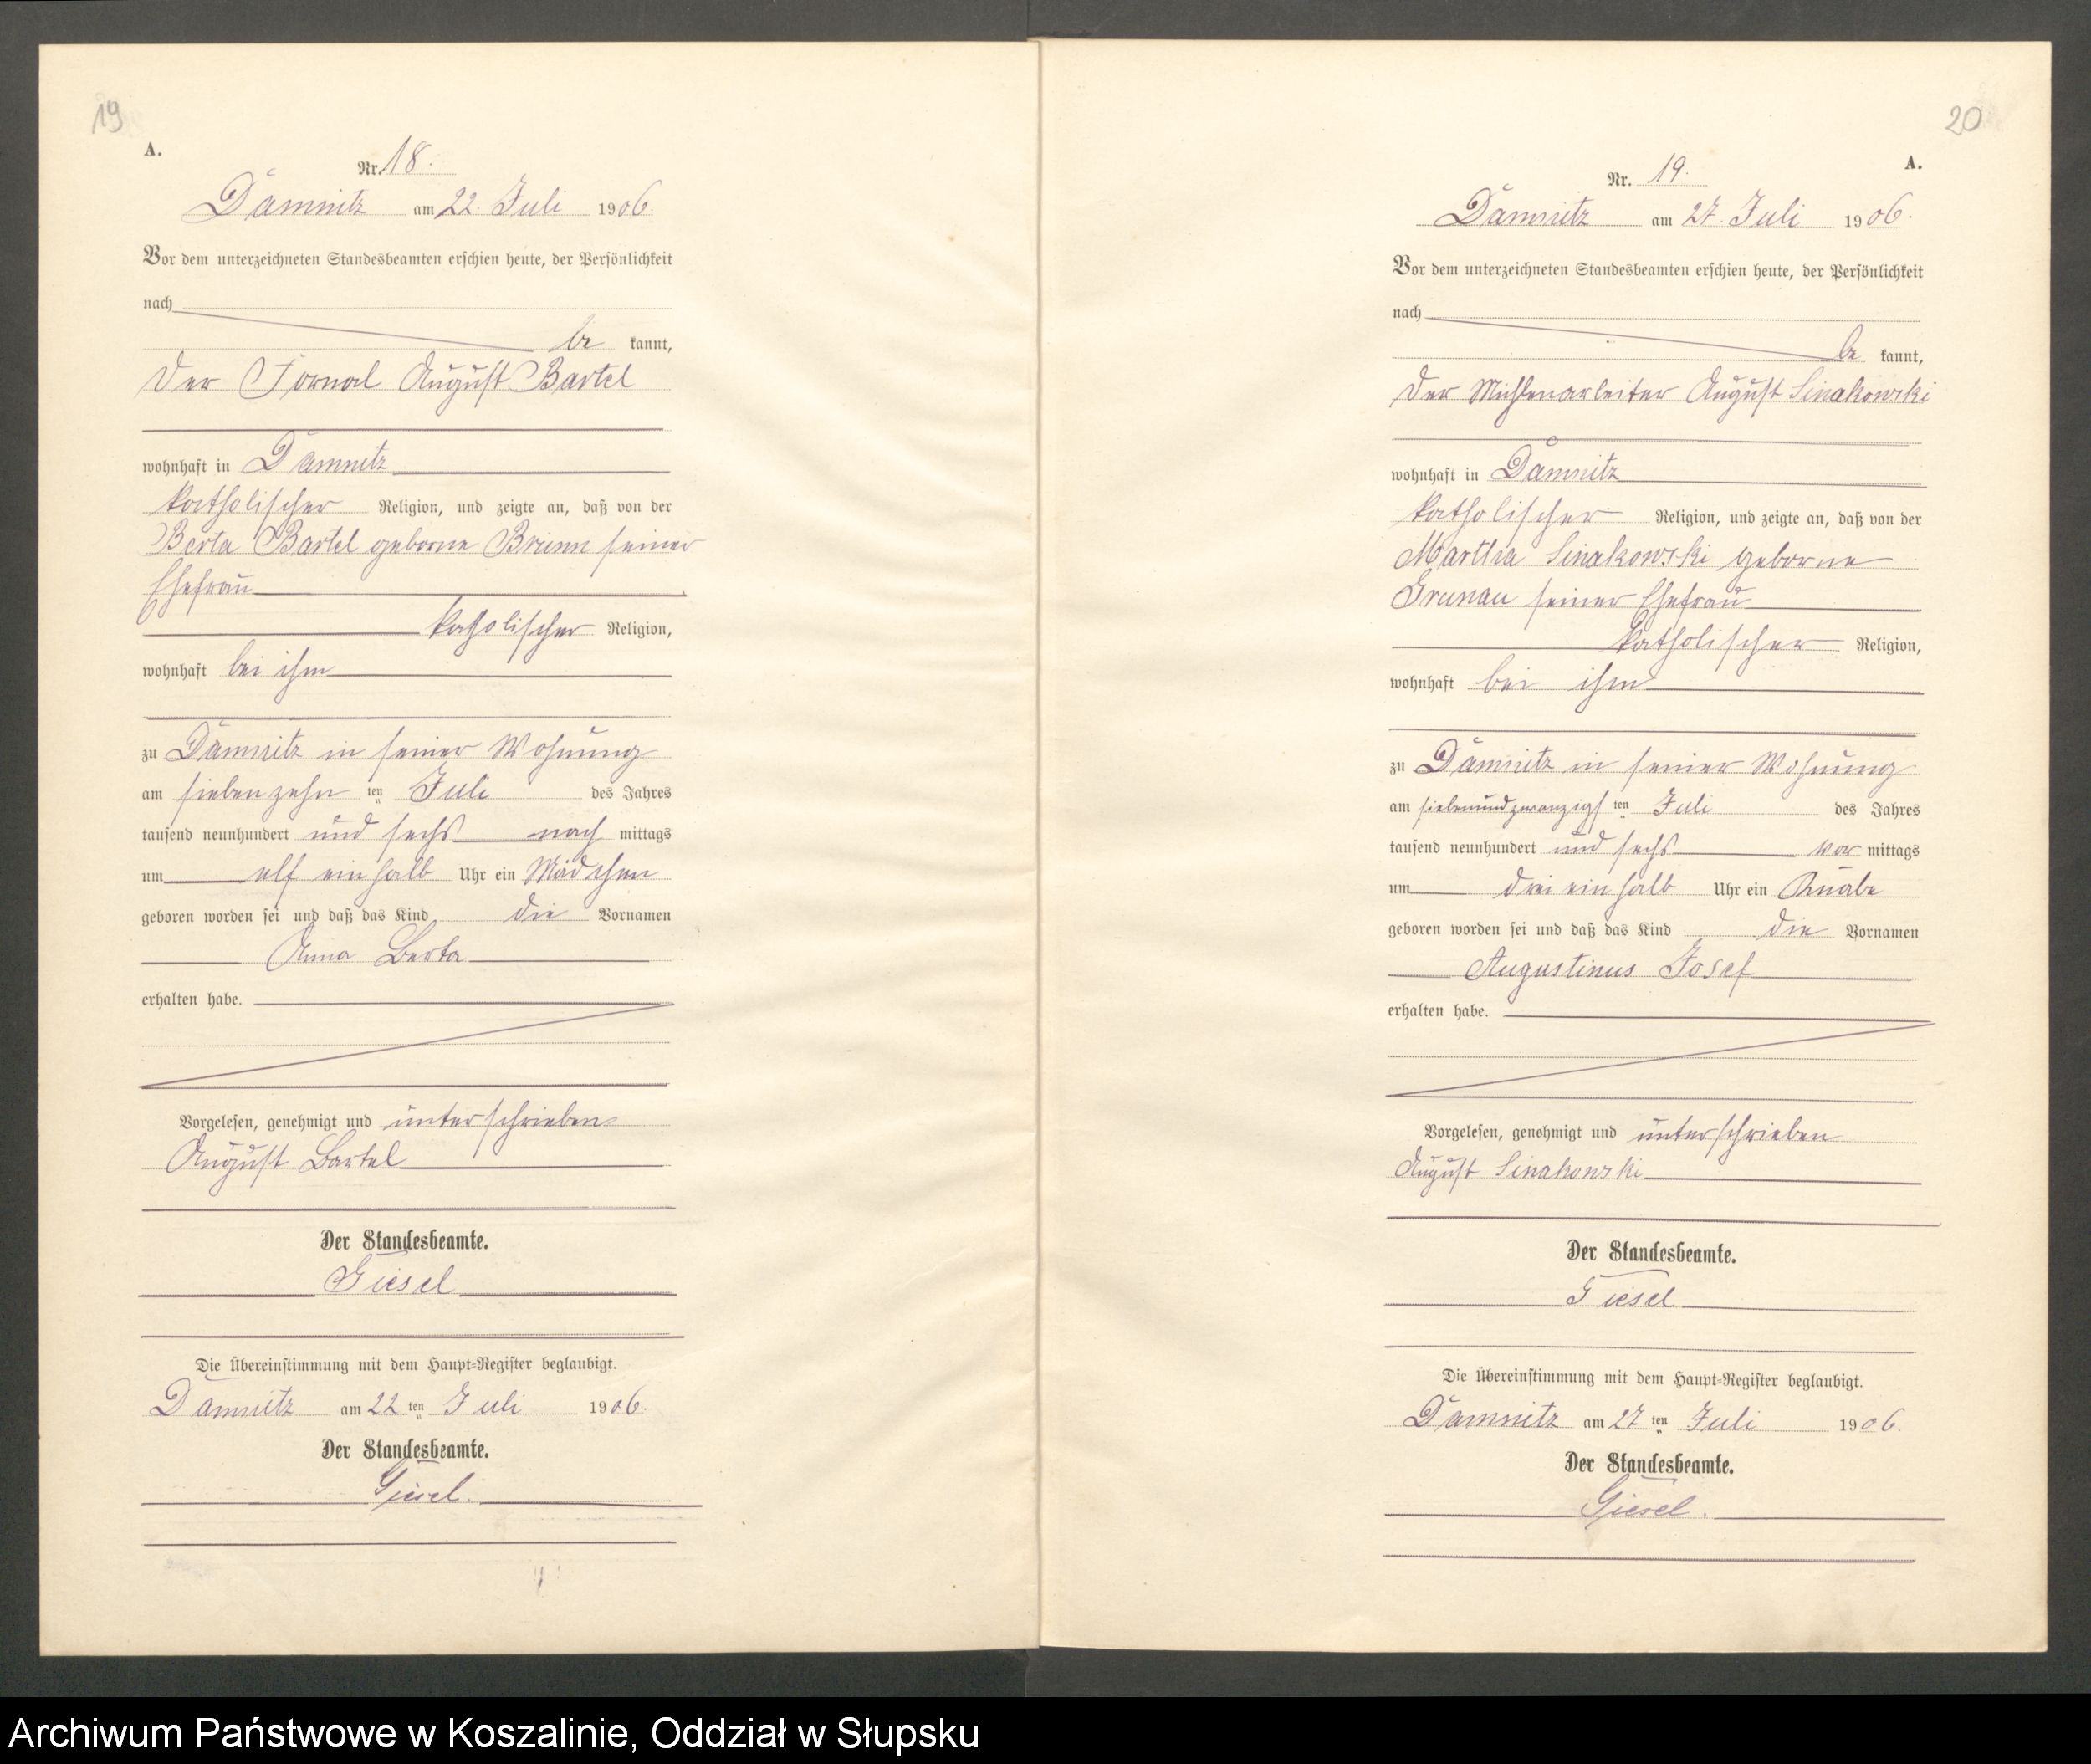 19
A.
Nr. 18.
Damnitz am 22. Juli 1906.
Vor dem unterzeichneten Standesbeamten erschien heute, der Persönlichkeit
nach
be kannt,
der August Bartel
wohnhaft in Damnitz
katholischer Religion, und zeigte an, daß von der
Berta Bartel geborne seiner
Ehefrau
katholischer Religion,
wohnhaft bei ihm
zu Damnitz in seiner Wohnung
am siebenzehn ten Juli des Jahres
tausend neunhundert und sechs nach mittags
um elf ein halb Uhr ein Mädchen
geboren worden sei und daß das Kind die Vornamen
Anna Berta
erhalten habe.
Vorgelesen, genehmigt und unterschrieben
August Bartel
Der Standesbeamte.
Giesel
Die Übereinstimmung mit dem Haupt-Register beglaubigt.
Damnitz am 22 ten Juli 1906.
Der Standesbeamte.
Giesel.
20
A.
Nr. 19.
Damnitz am 27. Juli 1906.
Vor dem unterzeichneten Standesbeamten erschien heute, der Persönlichkeit
nach
be kannt,
der Mühlenarbeiter August Sinakowski
wohnhaft in Damnitz
katholischer Religion, und zeigte an, daß von der
Martha Sinakowski geborne
Grunau seiner Ehefrau
katholischer Religion,
wohnhaft bei ihm
zu Damnitz in seiner Wohnung
am siebenundzwanzigs ten Juli des Jahres
tausend neunhundert und sechs vor mittags
um drei ein halb Uhr ein Knabe
geboren worden sei und daß das Kind die Vornamen
Augustinus Josef
erhalten habe.
Vorgelesen, genehmigt und unterschrieben
August Sinakowski
Der Standesbeamte.
Giesel
Die Übereinstimmung mit dem Haupt-Register beglaubigt.
Damnitz am 27 ten Juli 1906.
Der Standesbeamte.
Giesel.
Archiwum Państwowe w Koszalinie, Oddział w Słupsku